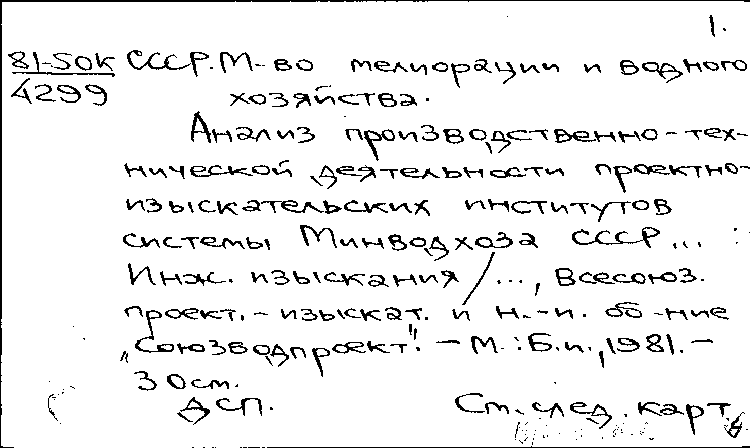 1.
81-50К СССР. М-во мелиорации и водного
4299 хозяйства.
Анализ производственно-тех-
нической деятельности проектно-
изыскательских институтов
системы Минводхоза СССР... :
Инж. изыскания / ..., Всесоюз.
проект.-изыскат. и н.-и. об-ние
"Союзводпроект". - М. : Б.и., 1981. -
30см.
ДСП.
См. след. карт.